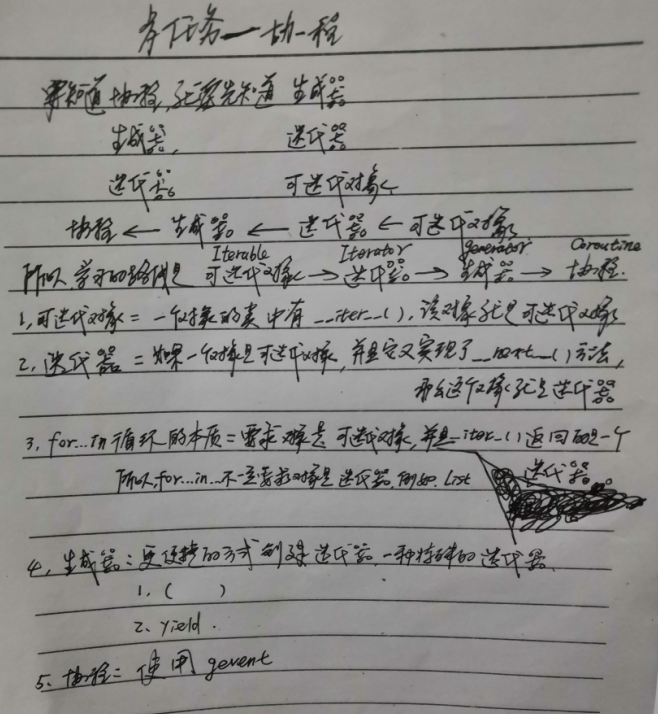 多任务—协程
要知道协程,就要先知道 生成器
生成器, 迭代器
迭代器 可迭代对象
协程 ← 生成器 ← 迭代器 ← 可迭代对象
Iterable Iterator generator Coroutine
所以,学习的路线是 可迭代对象 → 迭代器 → 生成器 → 协程.
1,可迭代对象 = 一个对象的类中有 __iter__(),该对象就是可迭代对象
2,迭代器 = 如果一个对象是可迭代对象,并且定义实现了 __next__()方法,
那么这个对象就是迭代器
3,for...in循环的本质 = 要求对象是 可迭代对象,并且__iter__()返回的是一个
迭代器
所以,for...in...不一定要求对象是 迭代器,例如. List
4,生成器:更便捷的方式创建迭代器.一种特殊的迭代器.
1、( )
2、yield.
5、协程: 使用 gevent